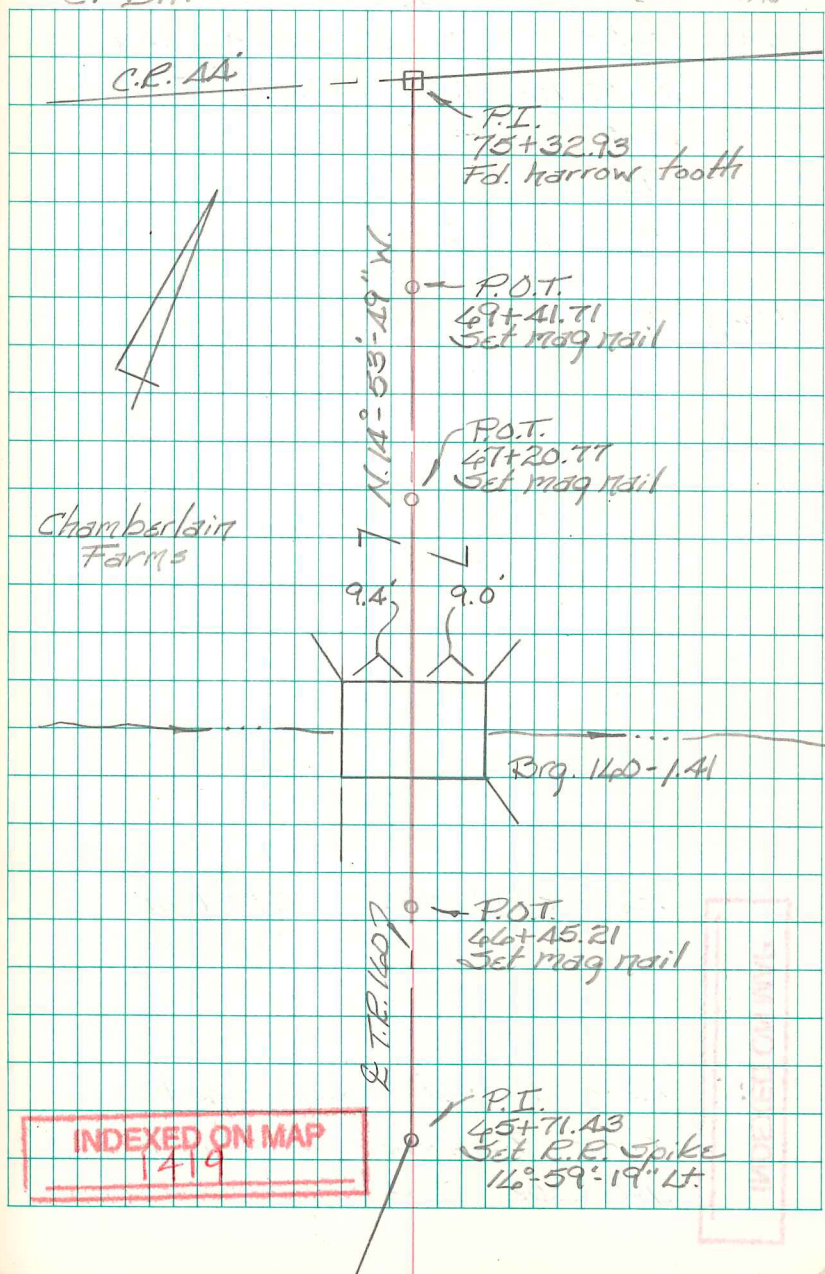 C.R. 44
P.I.
75+32.93
Fd. harrow tooth
P.O.T.
69+41.71
Set mag nail
N.14°-53'-49"W.
P.O.T.
67+20.77
Set mag nail
Chamberlain
Farms
9.4' 9.0'
Brg. 160-1.41
P.O.T.
66+45.21
Set mag nail
℄ T.R. 160
P.I.
65+71.43
Set R.R. Spike
16°-59'-19" Lt.
INDEXED ON MAP
1419